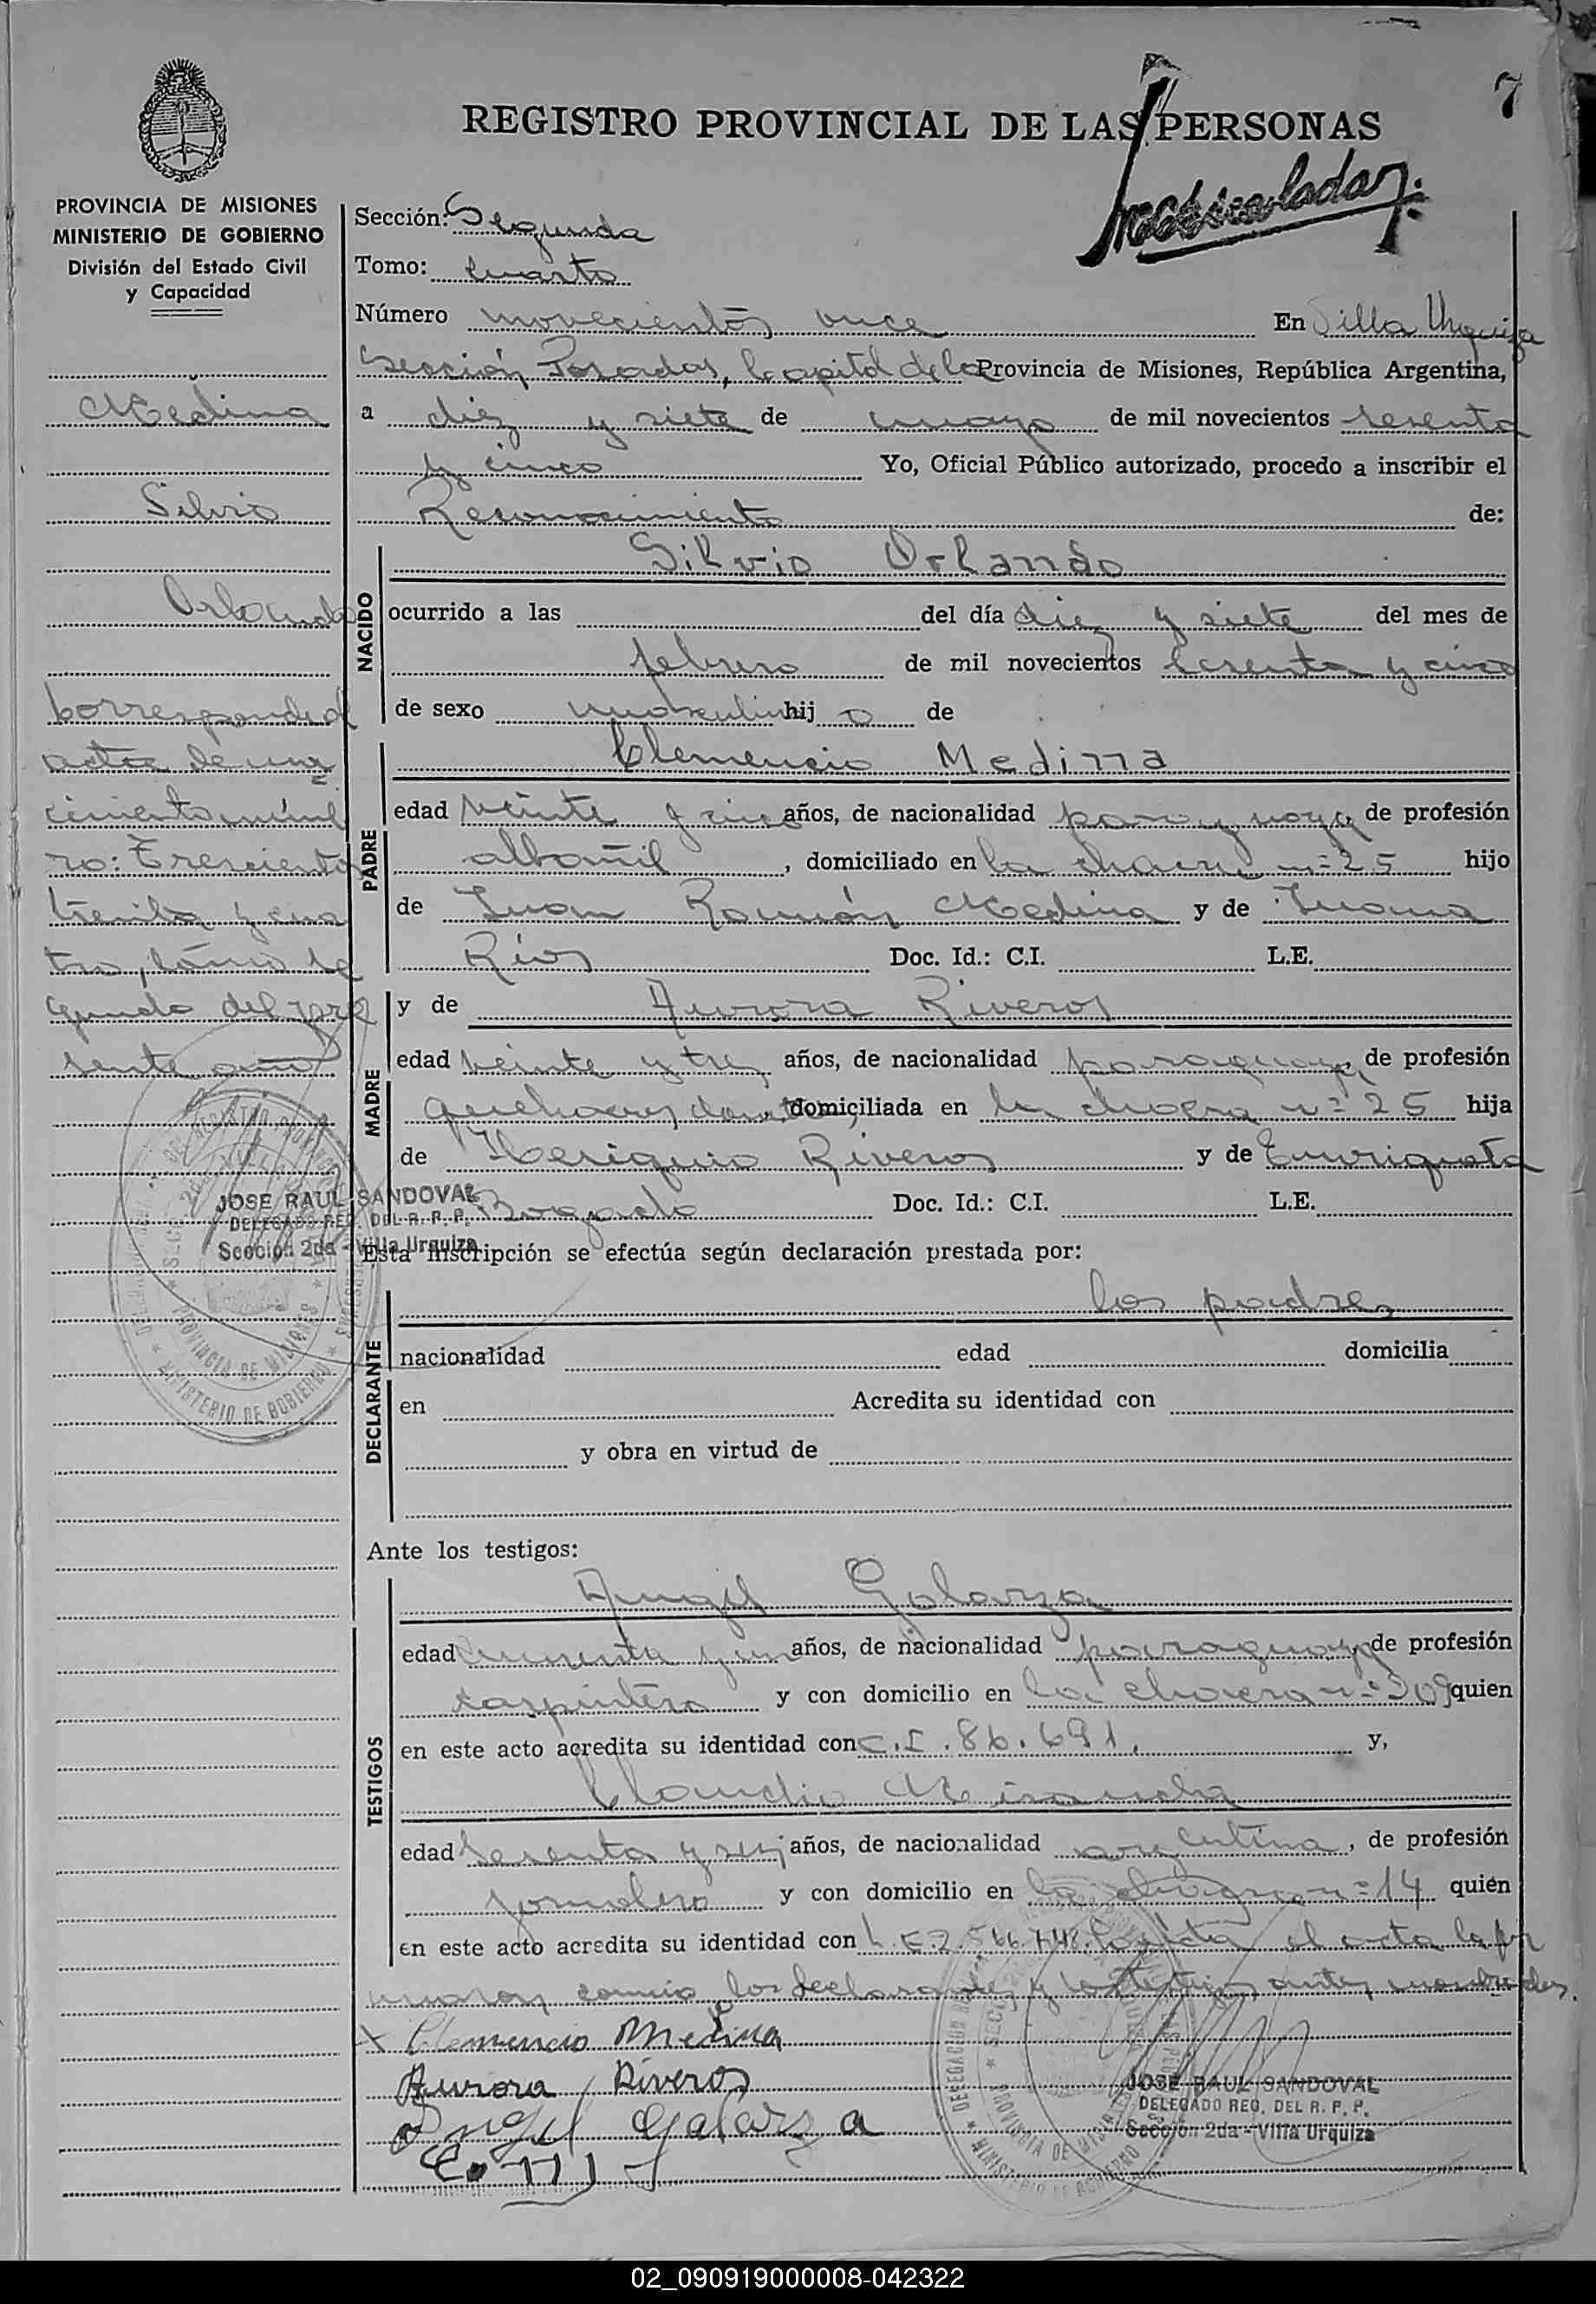 7
REGISTRO PROVINCIAL DE LAS PERSONAS
PROVINCIA DE MISIONES
MINISTERIO DE GOBIERNO
División del Estado Civil
y Capacidad
Medina
Silvio
Orlando
Corresponde al
acta de una
cimiento núme
ro: Trescientos
treinta y cua
tro, tomo se
gundo del pre
sente año
JOSE RAUL SANDOVAL
DELEGADO REG. DEL R. P. P.
Sección 2da - Villa Urquiza
Matriculados
Sección: Segunda
Tomo: Cuarto
Número novecientos once En Villa Urquiza
Sección Posadas, Capital de la Provincia de Misiones, República Argentina,
a diez y siete de mayo de mil novecientos sesenta
y cinco Yo, Oficial Público autorizado, procedo a inscribir el
Reconocimiento de:
NACIDO
Silvio Orlando
ocurrido a las del día diez y siete del mes de
febrero de mil novecientos sesenta y cinco
de sexo masculino hijo de
PADRE
Clemencio Medina
edad veinte y cinco años, de nacionalidad paraguaya, de profesión
albañil, domiciliado en la chacra n=25 hijo
de Juan Ramón Medina y de Juana
Rios Doc. Id.: C.I. L.E.
MADRE
y de Aurora Riveros
edad veinte y tres años, de nacionalidad paraguaya, de profesión
quehaceres domiciliada en la chacra n=25 hija
de Riveros y de Enriqueta
Bogado Doc. Id.: C.I. L.E.
Esta inscripción se efectúa según declaración prestada por:
DECLARANTE
los padres
nacionalidad edad domicilia
en Acredita su identidad con
y obra en virtud de
Ante los testigos:
TESTIGOS
Angel Galarza
edad y un años, de nacionalidad paraguaya de profesión
carpintero y con domicilio en la chacra n= 209 quien
en este acto acredita su identidad con C.I. 86.691, y,
Claudio Miranda
edad sesenta y seis años, de nacionalidad argentina, de profesión
jornalero y con domicilio en la chacra n=14 quién
en este acto acredita su identidad con L.E. 2.566.748. Leída el acta la fir
maron conmigo los declarantes y los testigos antes nombrados.
x Clemencio Medina
Aurora Riveros
Angel Galarza
C. M
JOSE RAUL SANDOVAL
DELEGADO REG. DEL R. P. P.
Sección 2da - Villa Urquiza
02_090919000008-042322